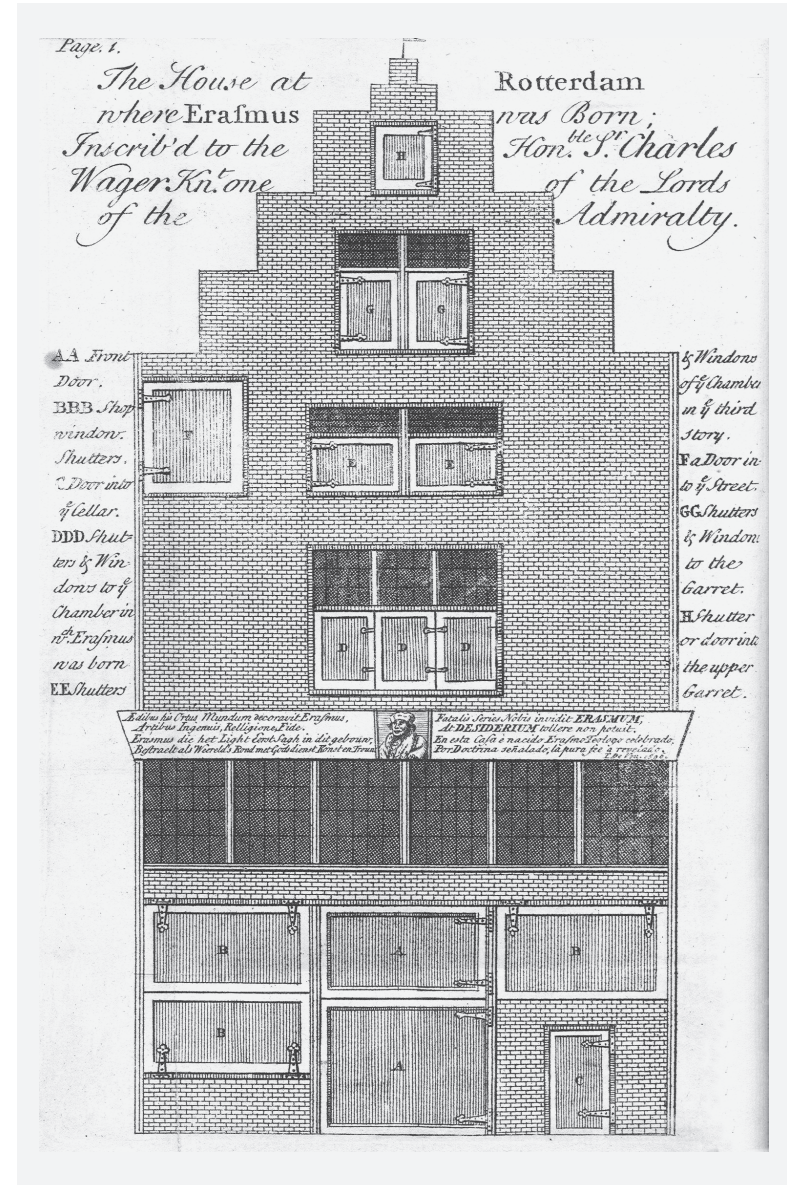 Page. 1.
The House at Rotterdam
where Eraſmus was Born;
Inscrib'd to the Hon.ble S.r Charles
Wager Kn.t one of the Lords
of the Admiralty.
AA Front
Door.
BBB Shop
window.
Shutters.
C Door into
yͤ Cellar.
DDD Shut-
ters & Win-
dows to yͤ
Chamber in
wch. Eraſmus
was born
EE Shutters
& Windows
of yͤ Chamber
in yͤ third
story.
F a Door in-
to yͤ Street.
GG Shutters
& Window
to the
Garret.
H Shutter
or door into
the upper
Garret.
H
G G
F
E E
D D D
Ædibus his Ortus Mundum decoravit Eraſmus,
Artibus Ingenuis, Relligione, Fide.
Erasmus die het Light Eerst Sagh in dit gebouw,
Bestraelt als Weerelds Rond met Godsdienst Konst en Trouw
Fatalis Series Nobis invidit ERASMUM,
At DESIDERIUM tollere non potuit.
En esta Caſa è nacido Eraſmo Teologo celebrado,
Por Doctrina señalado, la pura feè à revelado.
B A B
B A C